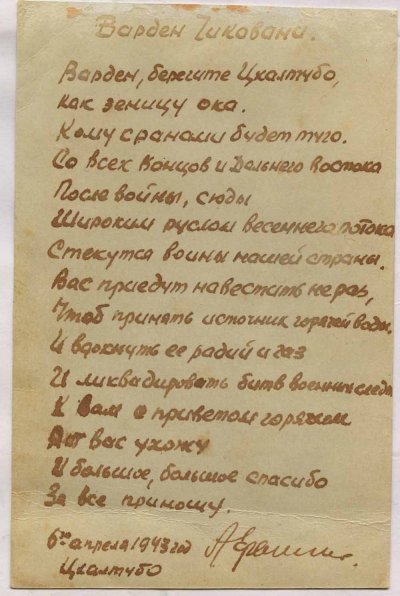 Варден Чиковани.
Варден, берегите Цхалтубо,
как зеницу ока.
Кому с ранами будет туго.
Со всех концов и Дальнего востока
После войны, сюды
Широким руслом весеннего потока
Стекутся воины нашей страны.
Вас приедут навестить не раз,
Чтоб принять источник горячей воды.
И вдохнуть ее радий и газ
И ликвидировать битв военных следы
К Вам с приветом горячим
От вас ухожу
И большое, большое спасибо
За все приношу.
6го апреля 1943 год
Цхалтубо